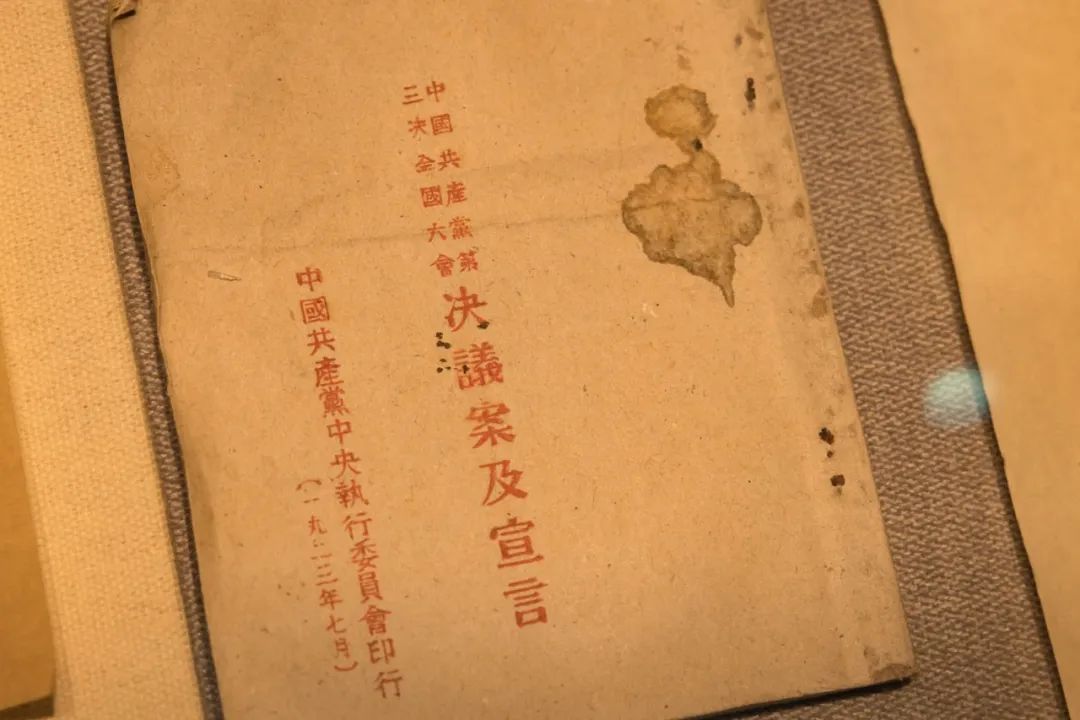 中國共產黨第
三次全國大會
決議案及宣言
中國共產黨中央執行委員會印行
（一九二三年七月）